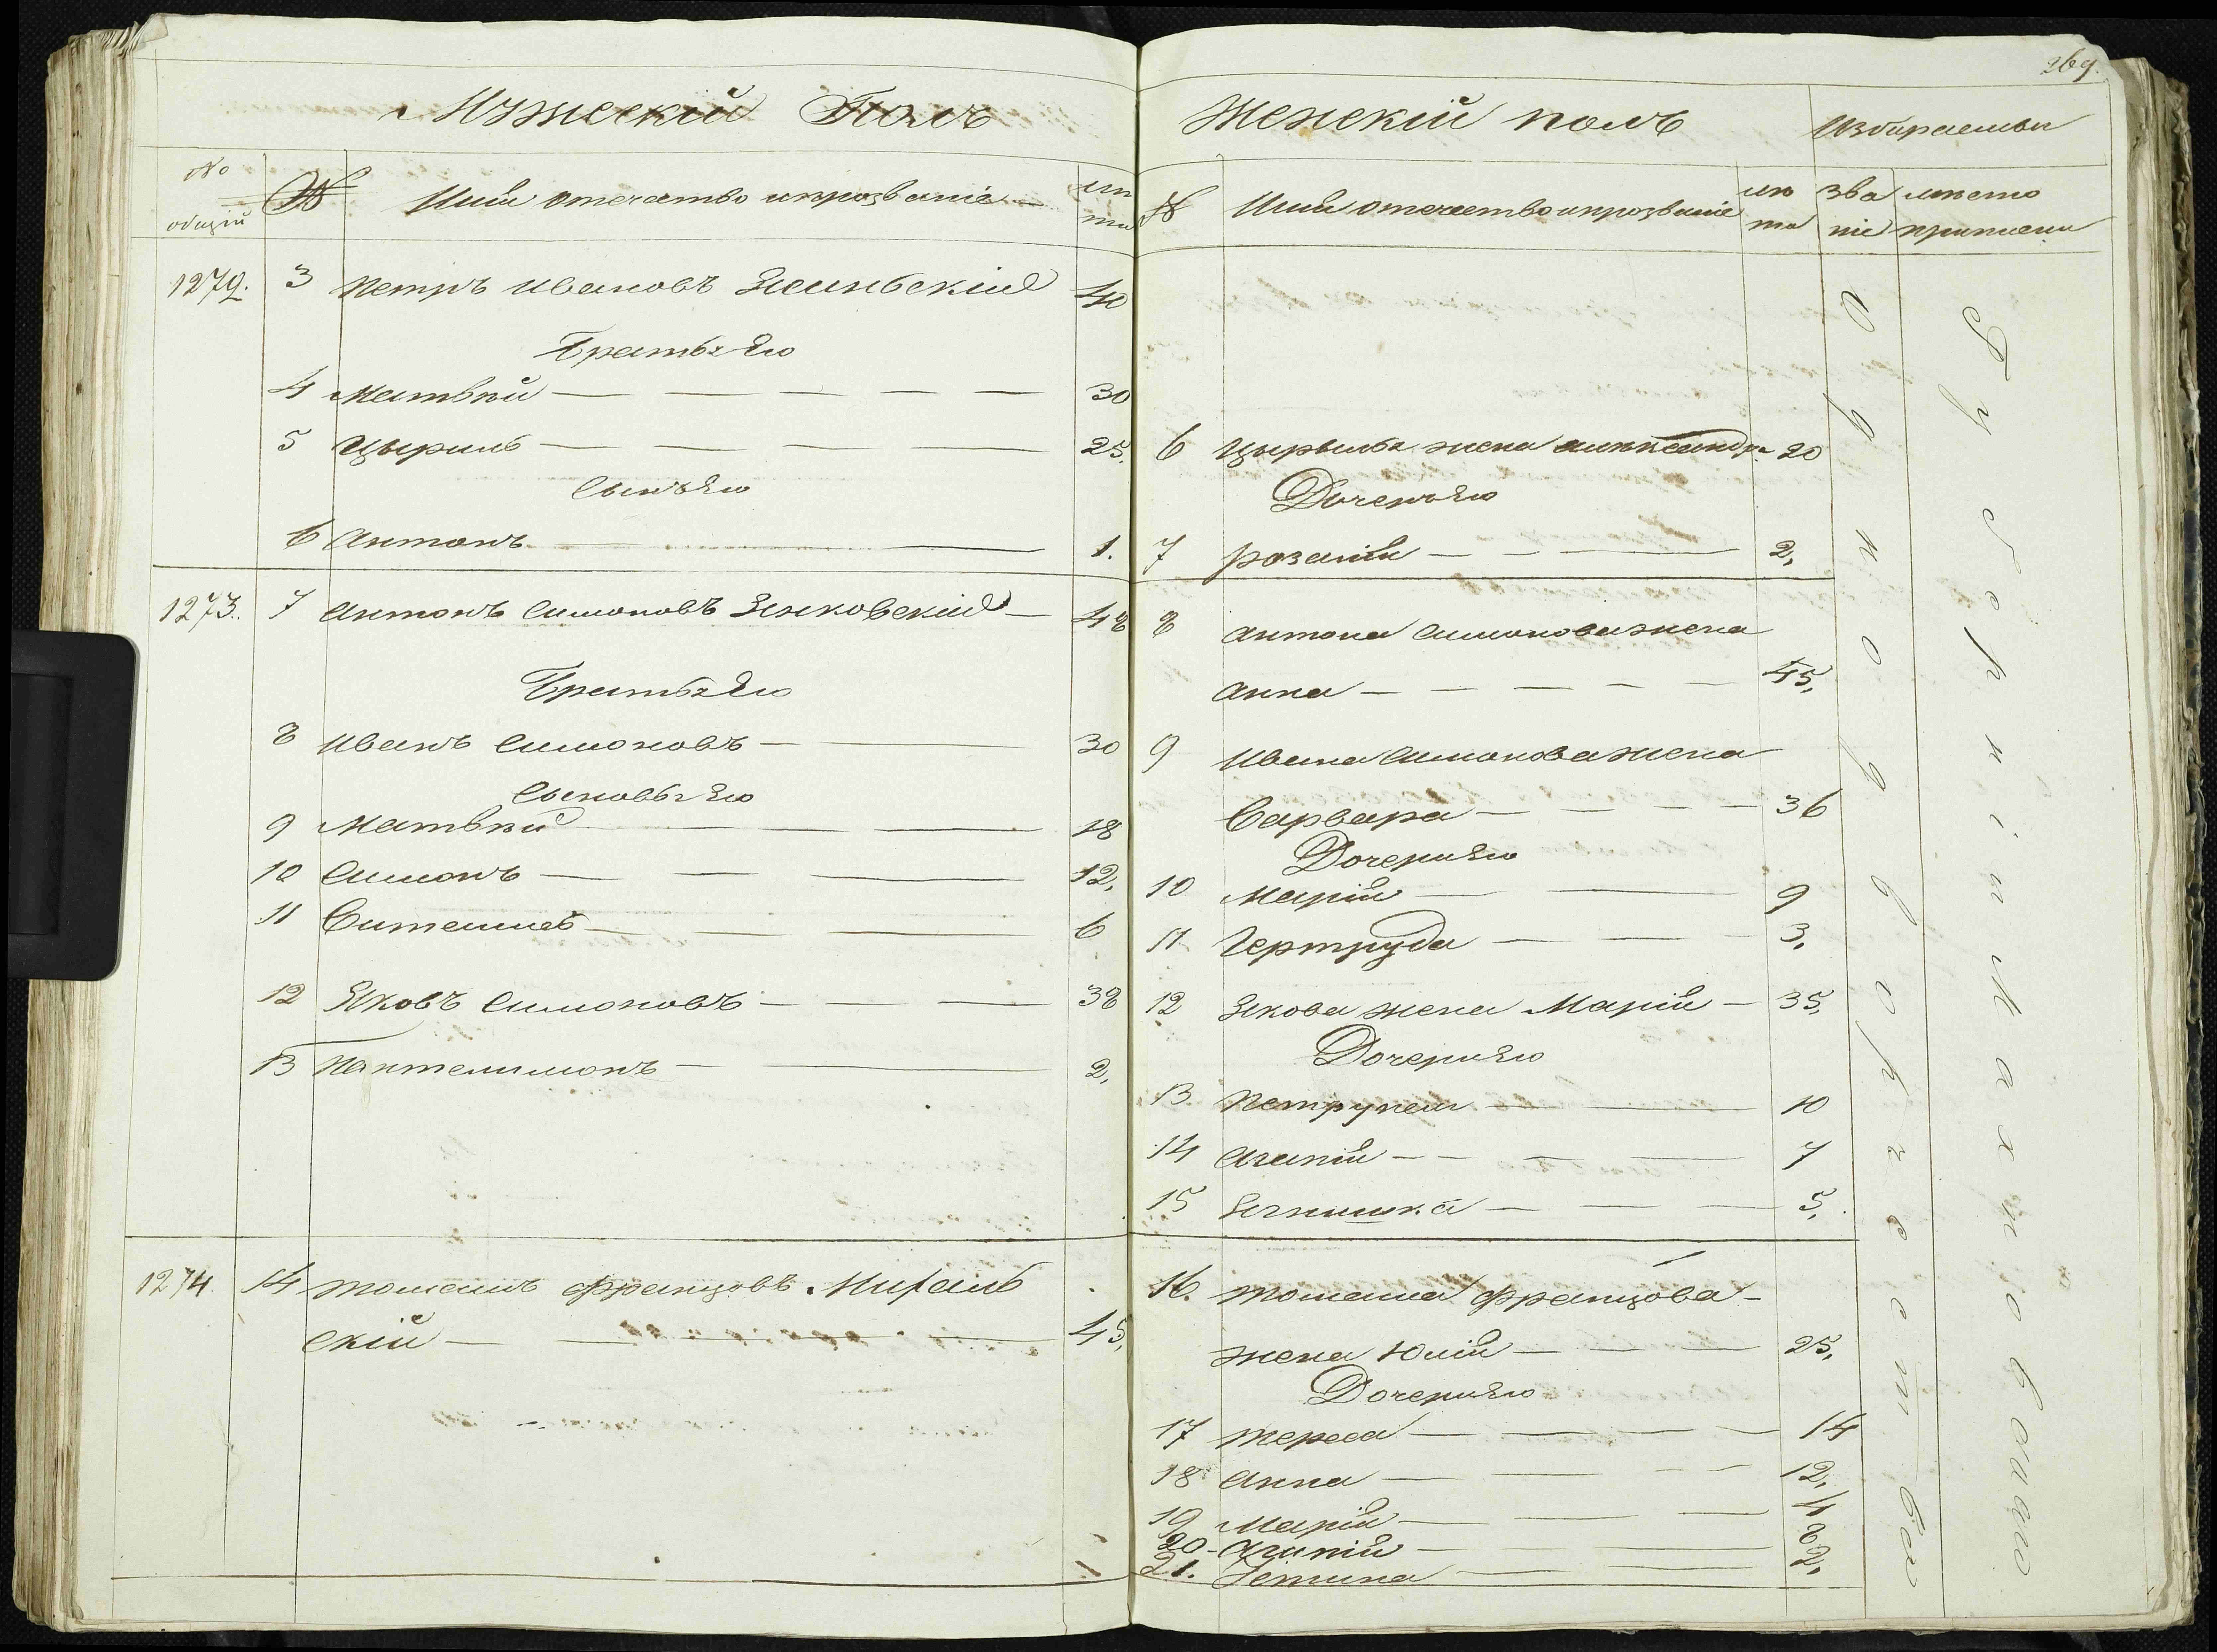 269.
Мужеский Полъ
№ общій
№
Имя отечество и прозваніе
лѣта
1272. 3 Петръ Ивановъ 40
Братья Его
4 Матвѣй 30
5 Цыриль 25.
Сынъ Его
6 Антонъ 1.
1273. 7 Антонъ Симоновъ Янковскій 48
Братья Его
8 Иванъ Симоновъ 30
Сыновья Его
9 Матвѣй 18
10 Симонъ 12,
11 6
12 Яковъ Симоновъ 38
13 Пантелимонъ 2,
1274. 14 Томашъ Францовъ
скій 45,
Женскій полъ
Избираемыи
№
Имя отечество и прозваніе
лѣта
званіе
мѣсто приписки
6 жена Александра 20
Дочерь Его
7 Розалія 2,
8 Антона Симонова жена
Анна 45,
9 Ивана Симонова жена
Варвара 36
Дочери Его
10 Марія 9
11 Гертруда 3,
12 Якова жена Марія 35,
Дочери Его
13 Петрунеля 10
14 Агапія 7
15 Ягнишка 5,
16. Томаша Францова
жена Юлія 25,
Дочери Его
17 Тереса 14
18 Анна 12,
19 Марія 4
20 Агапія 8
21. 2,
Однодворчество
Губерніи